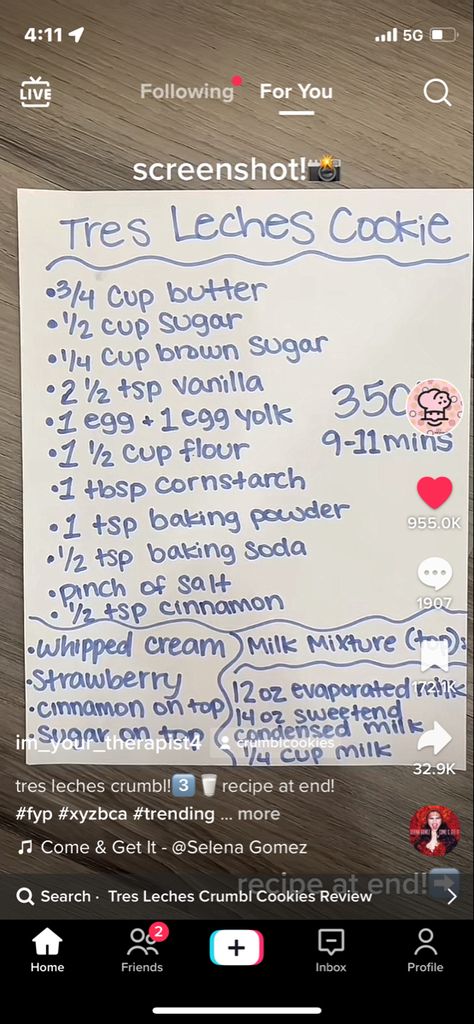 4:11
5G
LIVE
Following
For You
screenshot!
Tres Leches Cookie
•3/4 cup butter
•1/2 cup sugar
•1/4 cup brown sugar
•2 1/2 tsp vanilla
•1 egg + 1 egg yolk
•1 1/2 cup flour
•1 tbsp cornstarch
•1 tsp baking powder
•1/2 tsp baking soda
•pinch of salt
•1/2 tsp cinnamon
350
9-11 mins
955.0K
1907
172.1K
32.9K
•whipped cream
•Strawberry
•cinnamon on top
•sugar on top
Milk Mixture (top):
12 oz evaporated milk
14 oz sweetend
condensed milk
1/4 cup milk
im_your_therapist4
crumblcookies
tres leches crumbl!3️⃣🥛recipe at end!
#fyp #xyzbca #trending ... more
Come & Get It - @Selena Gomez
recipe at end!
Search · Tres Leches Crumbl Cookies Review
Home
Friends
2
Inbox
Profile